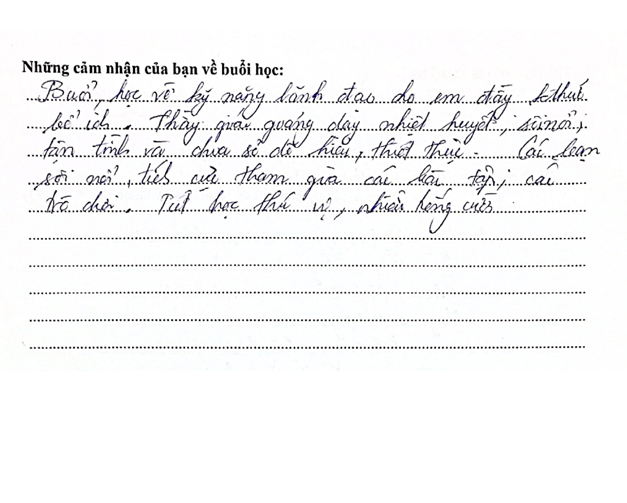 Những cảm nhận của bạn về buổi học:
Buổi học về kỹ năng lãnh đạo cho em đầy kthức
bổ ích. Thầy giáo giảng dạy nhiệt huyết, sôi nổi,
tận tình và chia sẻ dễ hiểu, thiết thực. Các bạn
sôi nổi, tích cực tham gia các bài tập, các
trò chơi. Tiết học thú vị, nhiều tiếng cười.